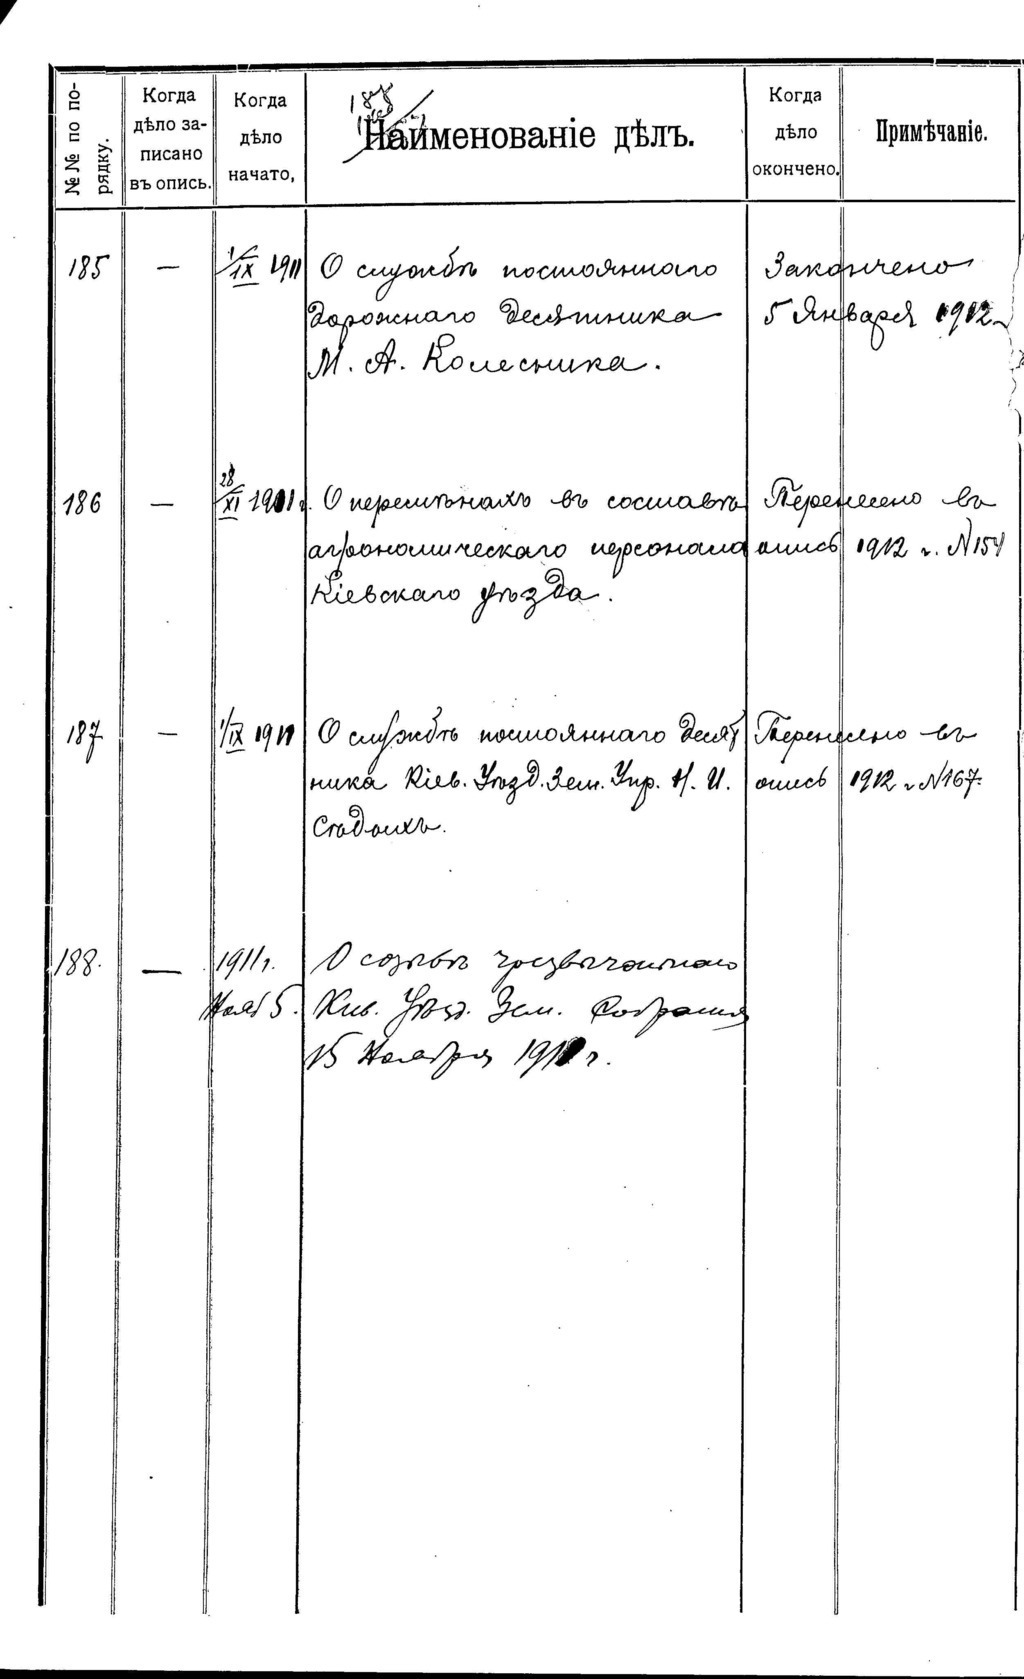 №№ по по-
рядку.
Когда
дѣло за-
писано
въ опись.
Когда
дѣло
начато,
Наименованіе дѣлъ.
Когда
дѣло
окончено.
Примѣчаніе.
185 — 1/IX 1911 О службѣ постояннаго Закончено
дорожнаго десятника 5 Января 1912
М. А. Колесника.
186 — 28/XI 1911 г. О перемѣнахъ въ составѣ Перенесено въ
агрономическаго персонала опись 1912 г. № 154
Кіевскаго уѣзда.
187 — 1/IX 1911 О службѣ постояннаго десят Перенесено въ
ника Кіев. Уѣзд. Зем. Упр. Н. И. опись 1912 г № 167.
188. — 1911 г. О созывѣ чрезвычайнаго
Нояб 5. Кив. Уѣзд. Зем. Собрания
15 Ноября 1911 г.